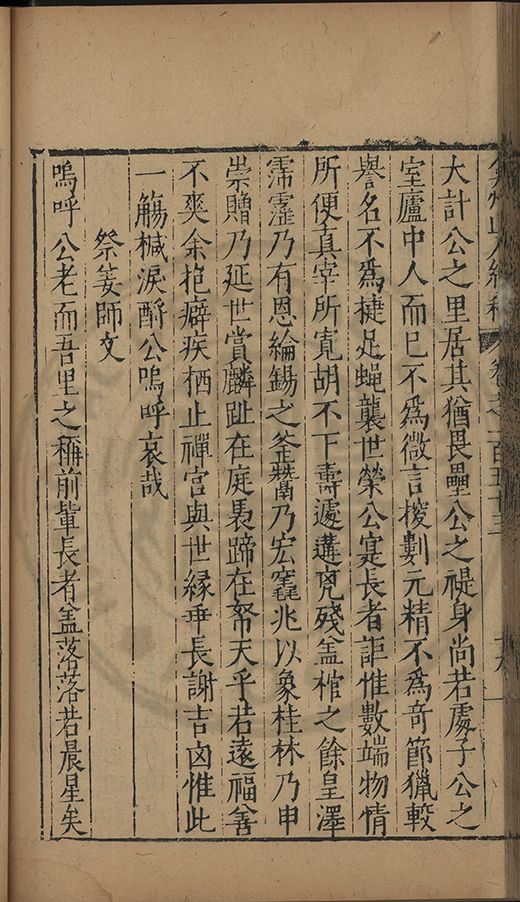 弇州山人續稿 卷之一百五十三 十八
大計公之里居其猶畏壘公之禔身尚若處子公之
室廬中人而已不爲微言㨷劃元精不爲竒節獵較
譽名不爲捷足蝿襲世榮公寔長者詎惟數端物情
所便真宰所寛胡不下壽遽遘
殘盖棺之餘皇澤
霈霔乃有恩綸錫之釜鬵乃宏窀兆以象桂林乃申
崇贈乃延世賞麟趾在庭褭蹄在帑天乎若遠福善
不爽余抱癖疾栖止禪宮與世縁乖長謝吉凶惟此
一觴椷淚酹公嗚呼哀哉
祭姜師文
嗚呼公老而吾里之稱前輩長者盖落落若晨星矣